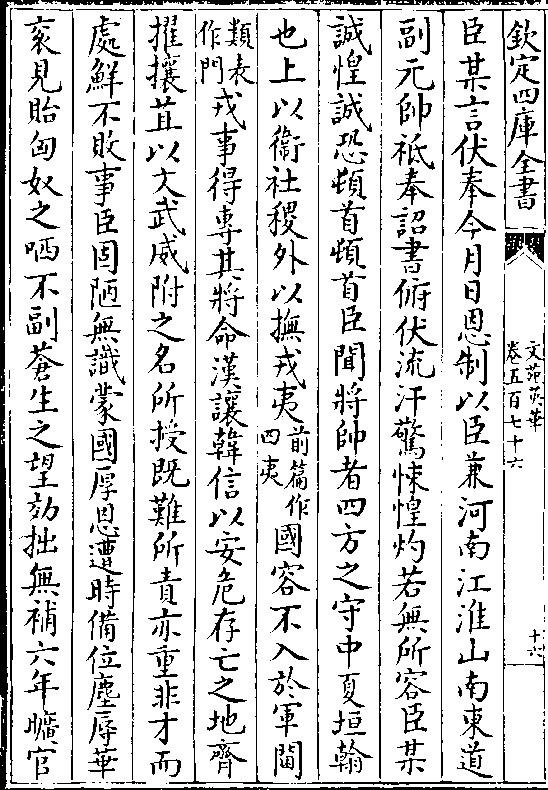 欽定四庫全書
文苑英華
卷五百七十六
十六
臣某言伏奉今月日恩制以臣兼河南江淮山南東道
副元帥祗奉詔書俯伏流汗驚悚惶灼若無所容臣某
誠惶誠恐頓首頓首臣聞將帥者四方之守中夏垣翰
也上以衞社稷外以撫戎夷前篇作四夷國容不入於軍閫
類表作門戎事得專其將命漢讓韓信以安危存亡之地齊
擢攘苴以文武威附之名所授既難所責亦重非才而
處鮮不敗事臣固陋無識蒙國厚恩遭時備位塵辱華
衮見貽匈奴之哂不副蒼生之望効拙無補六年曠官